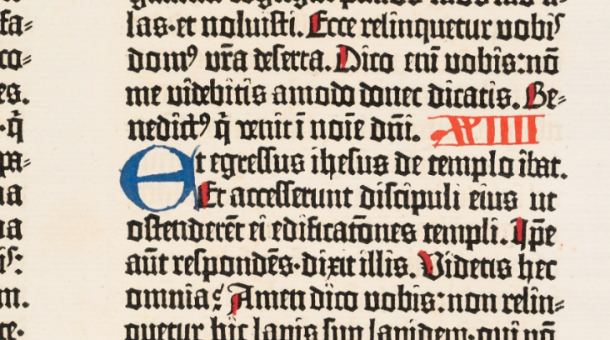 las·et noluisti. Ecce relinquetur vobis
domꝰ vr̃a deserta. Dico em̃ vobis:nõ
me videbitis amodo donec dicatis. Be⸗
nedictꝰ q̃ venit ĩ noĩe dñi. XXIIII
Et egressus ihesus de templo ibat.
Et accesserunt discipuli eius ut
ostenderẽt ei edificatiões templi. Ip̃e
aũt respondẽs·dixit illis. Videtis hec
omnia? Amen dico vobis:non relin⸗
quetur hic lapis sup̱ lapidem·qui nõ